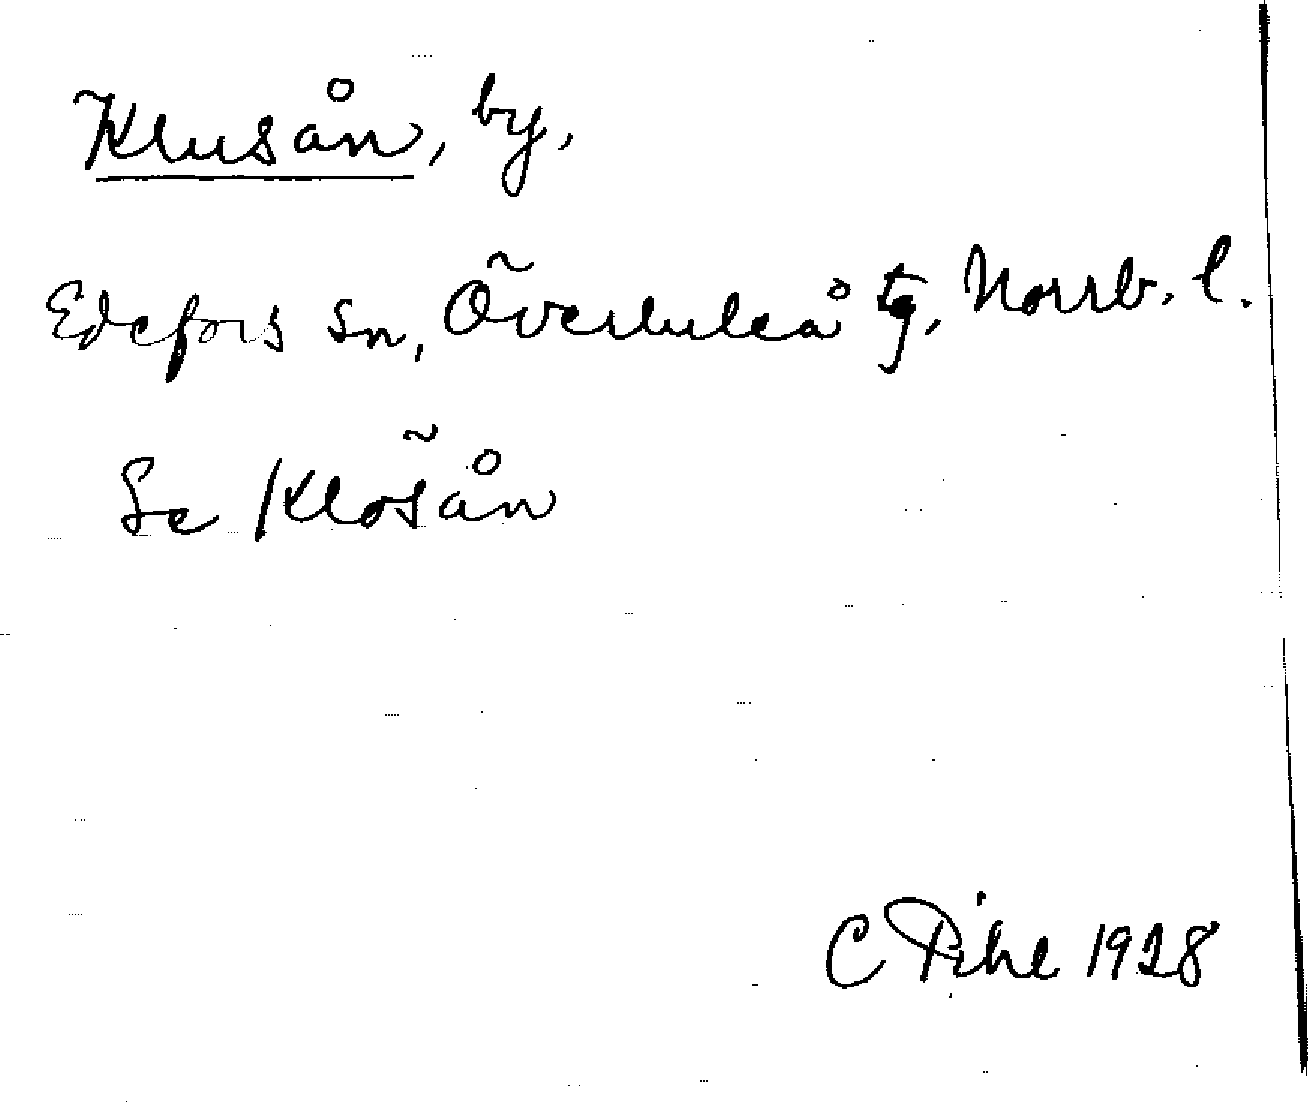 Klusån, by,
Edefors sn, Överluleå tg, Norrb. l.
Se Klösån
C Pihl 1928